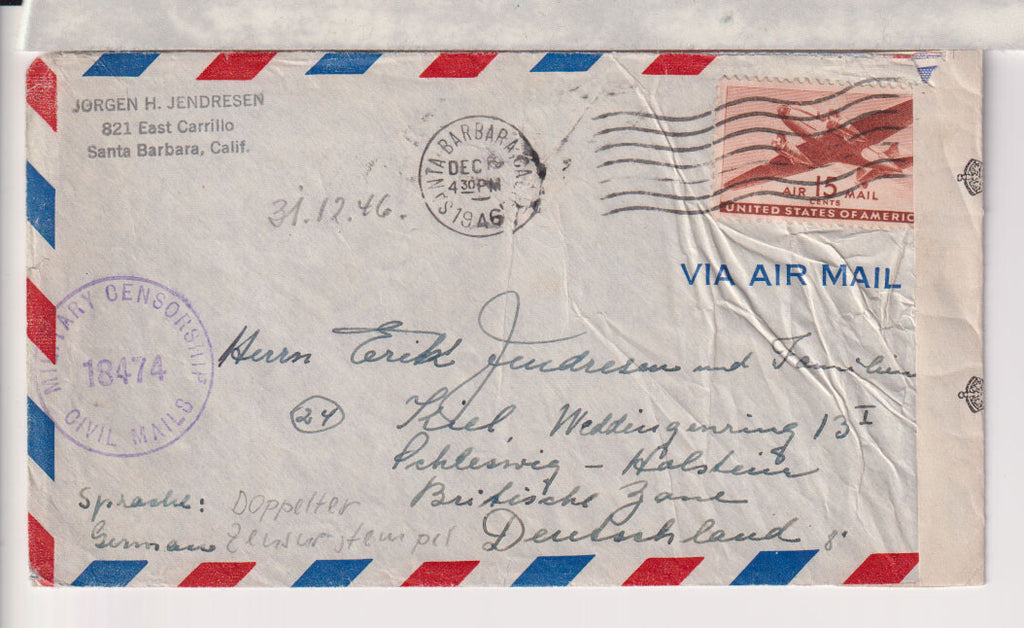 JØRGEN H. JENDRESEN
821 East Carrillo
Santa Barbara, Calif.
SANTA BARBARA, CALIF.
DEC
4 30 PM
1946
31.12.46.
AIR 15 MAIL
CENTS
UNITED STATES OF AMERIC
VIA AIR MAIL
MILITARY CENSORSHIP
18474
CIVIL MAILS
Herrn Erik Jendresen und Familien
24 Kiel, Weddingenring 13 I
Schleswig - Holstein
Britische Zone
Deutschland
Sprache: Doppelter
German Zensurstempel